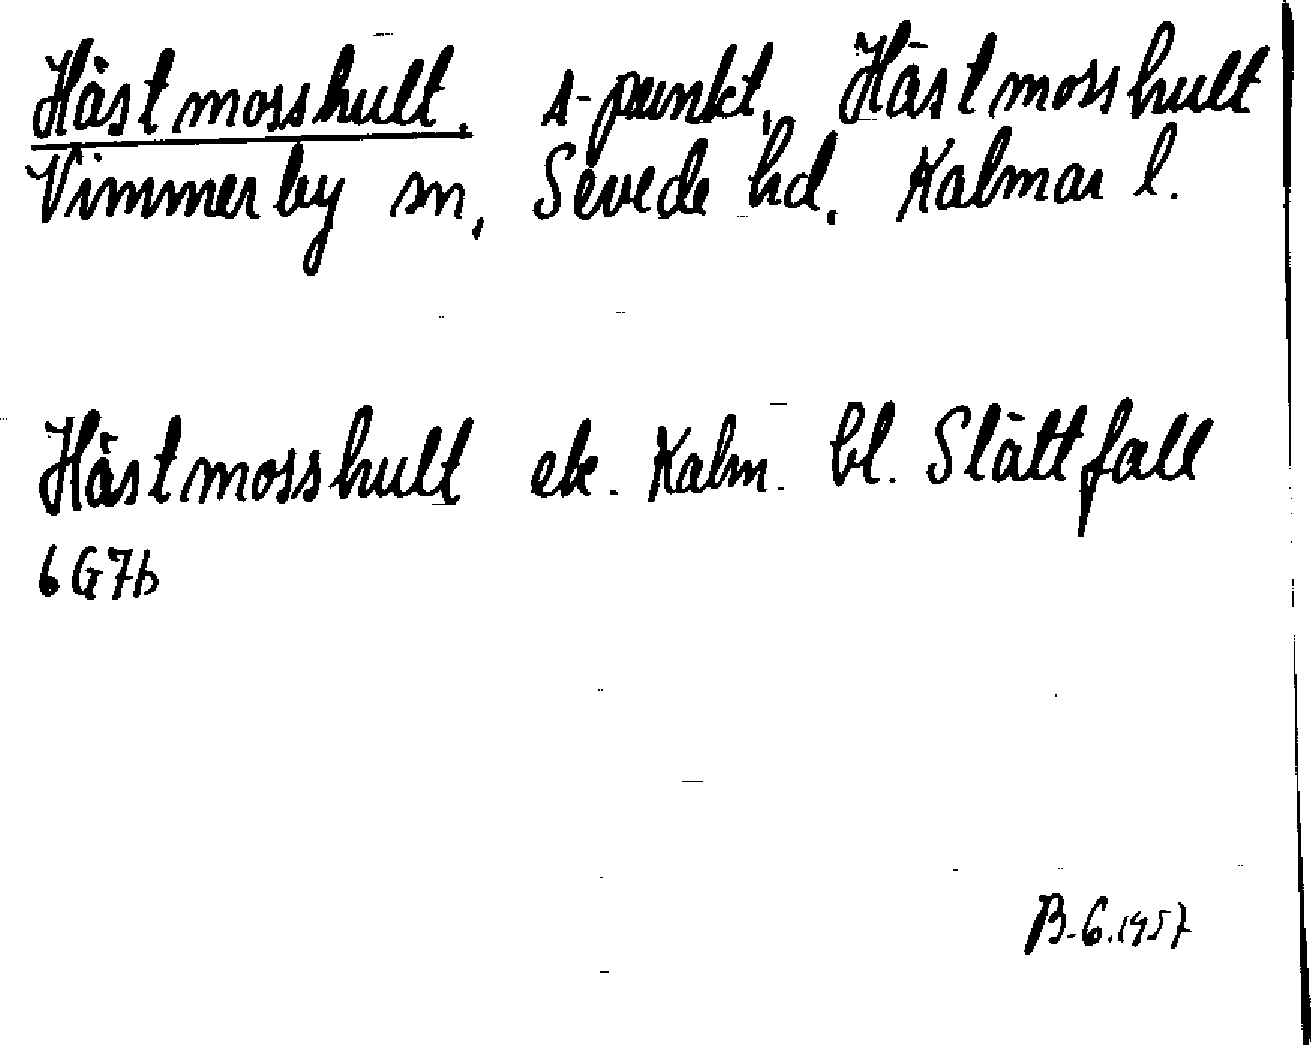 Hästmosshult. s-punkt, Hästmosshult
Vimmerby sn, Sevede hd. Kalmar l.
Hästmosshult ek. Kalm. bl. Slättfall
6G7b
B-G.1957